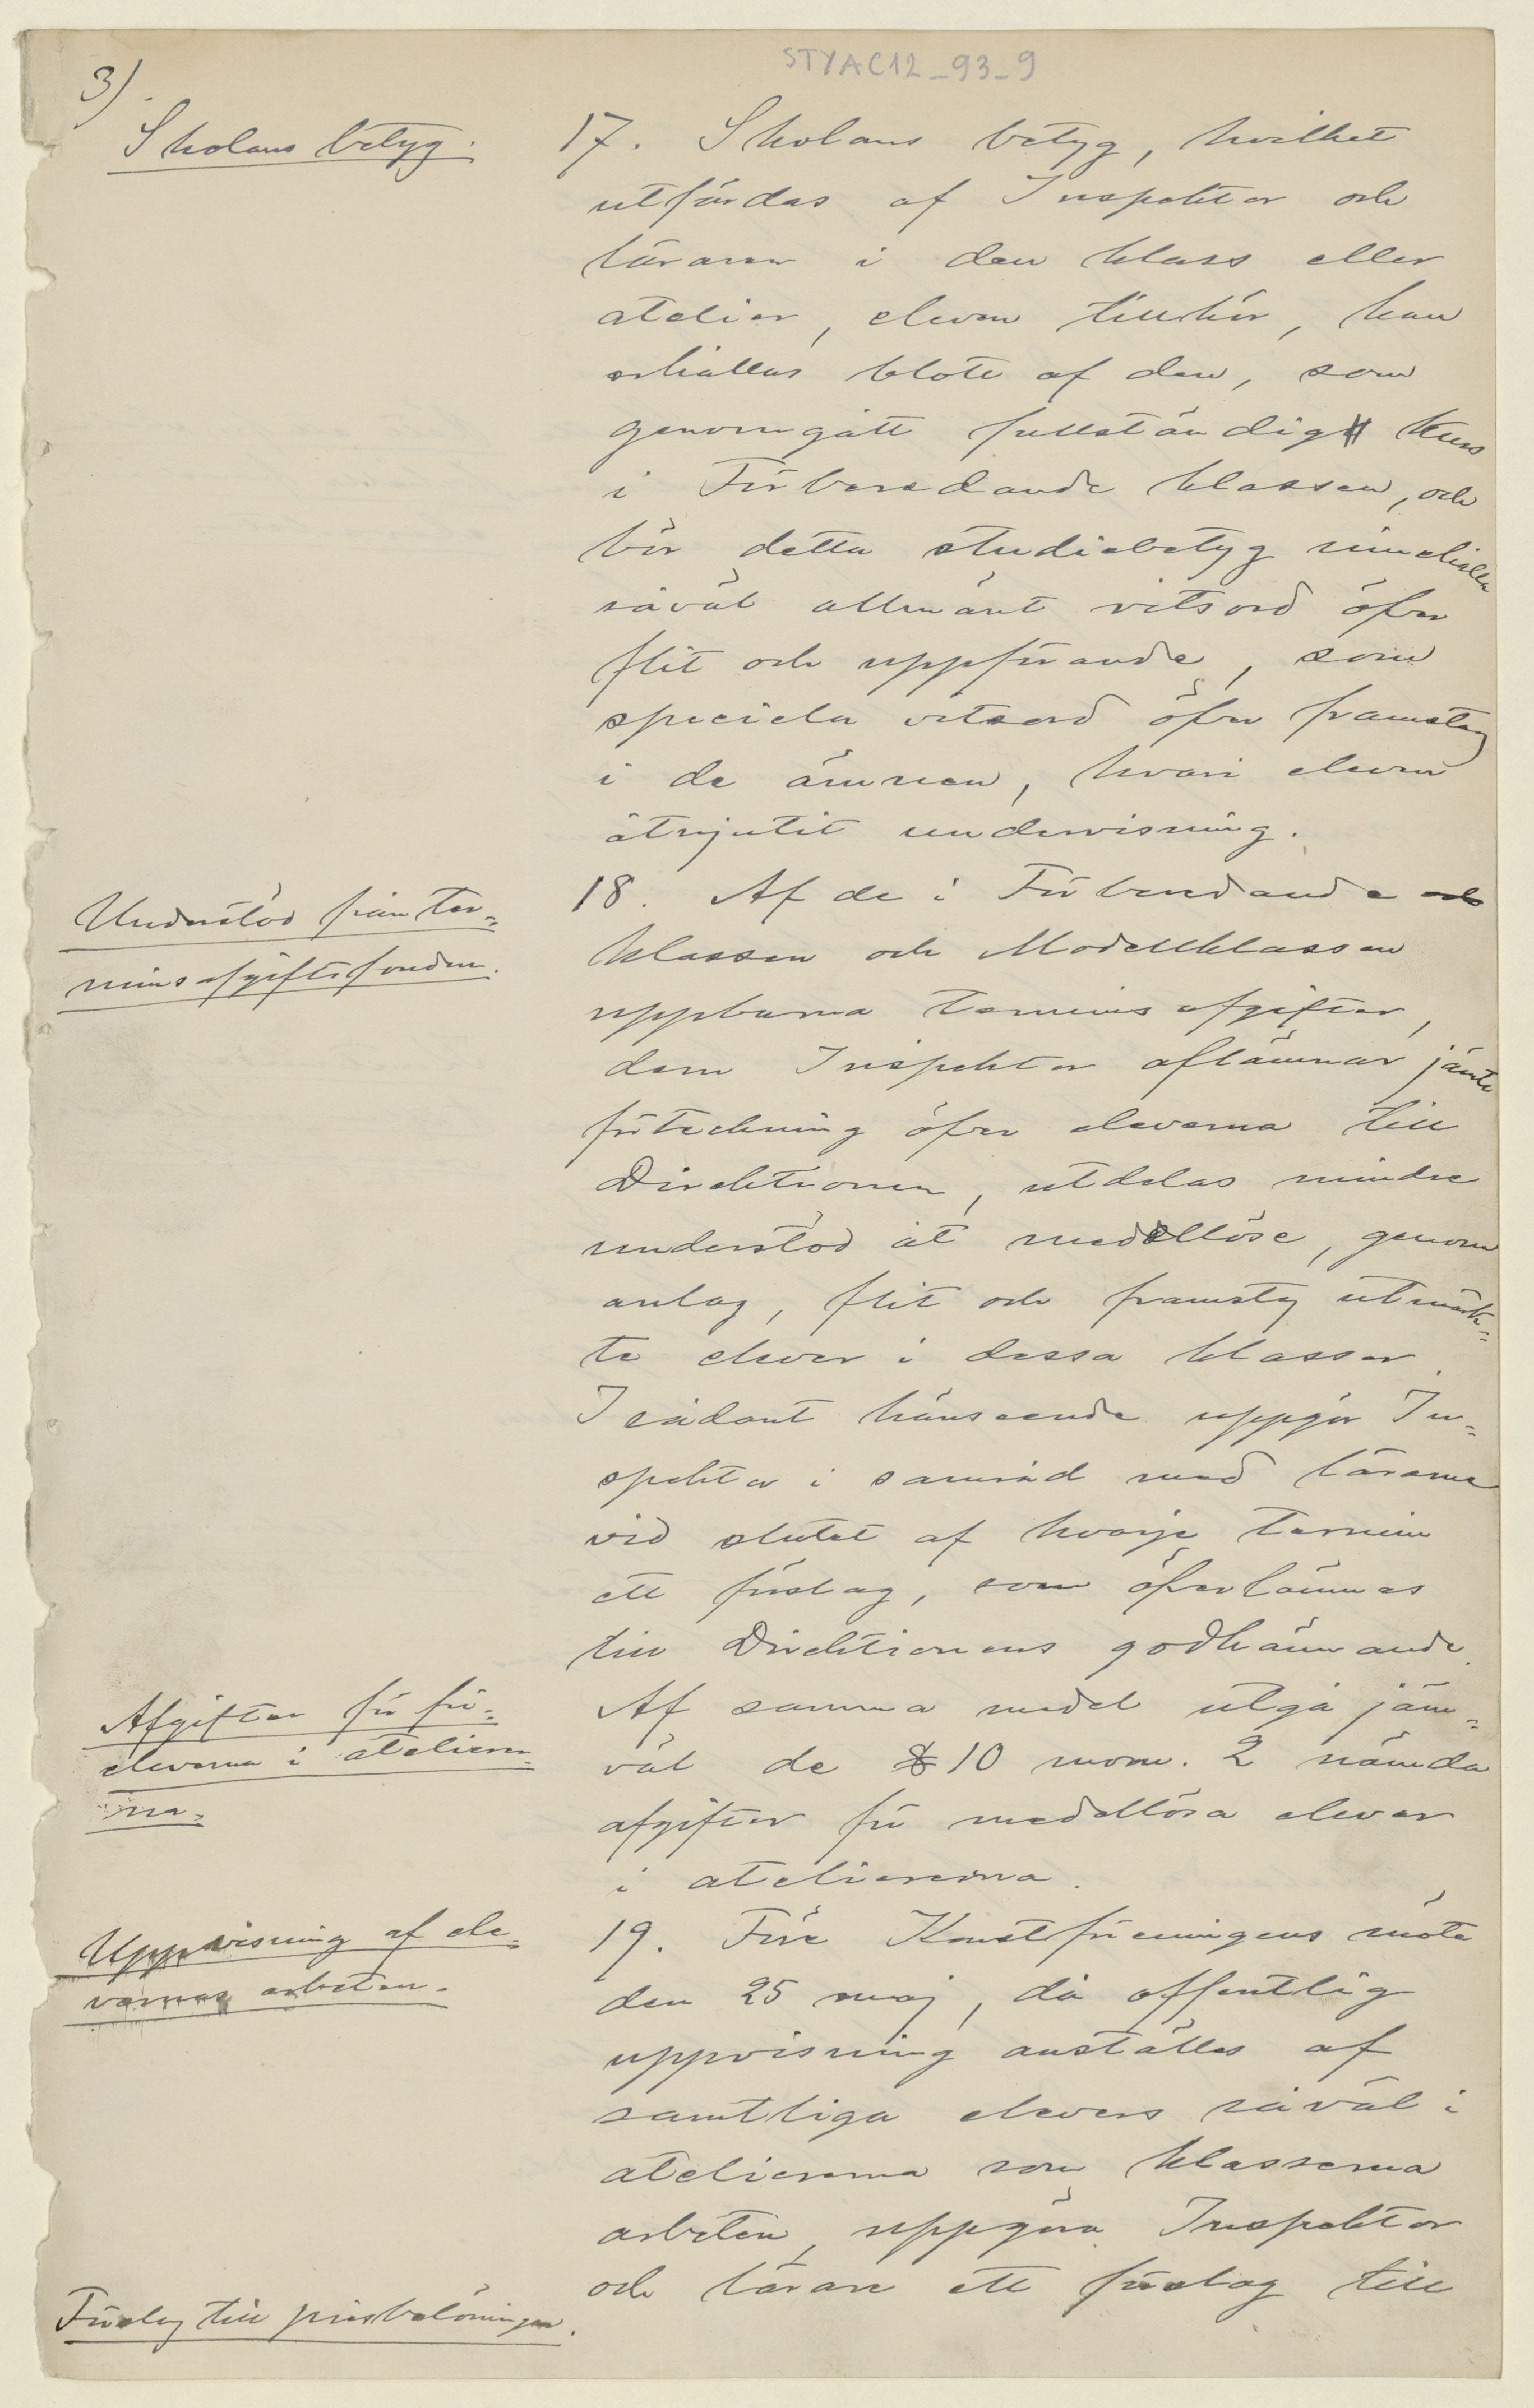 STYAC12_93_9
3).
Skolans betyg.
17. Skolans betyg, hvilket
utfärdas af Inspektor och
läraren i den klass eller
atelier, eleven tillhör, kan
erhållas blott af den, som
genomgått fullständig kurs
i Förberedande klassen, och
bör detta studiebetyg innehålla
såväl allmänt vitsord öfver
flit och uppförande, som
speciela vitsord öfver framsteg
i de ämnen, hvari eleven
åtnjutit undervisning.
Understöd från ter=
minsafgiftsfonden.
18. Af de i Förberedande och
klassen och Modellklassen
uppburna terminsafgifter,
dem Inspektor aflämnar jämte
förteckning öfver eleverna till
Direktionen, utdelas mindre
understöd åt medellöse, genom
anlag, flit och framsteg utmärk=
te elever i dessa klasser.
I sådant hänseende uppgör In=
spektor i samråd med lärarne
vid slutet af hvarje termin
ett förslag, som öfverlämnas
till Direktionens godkännande.
Afgifter för fri=
eleverna i atelierer=
na.
Af samma medel utgå jäm=
väl de § 10 mom. 2 nämda
afgifter för medellösa elever
i ateliererna.
Uppvisning af ele=
vernas arbeten.
19. Före Konstföreningens möte
den 25 maj, då offentlig
uppvisning anställes af
samtliga elevers såväl i
ateliererna som klasserna
arbeten, uppgöra Inspektor
och lärare ett förslag till
Förslag till prisbelöningar.